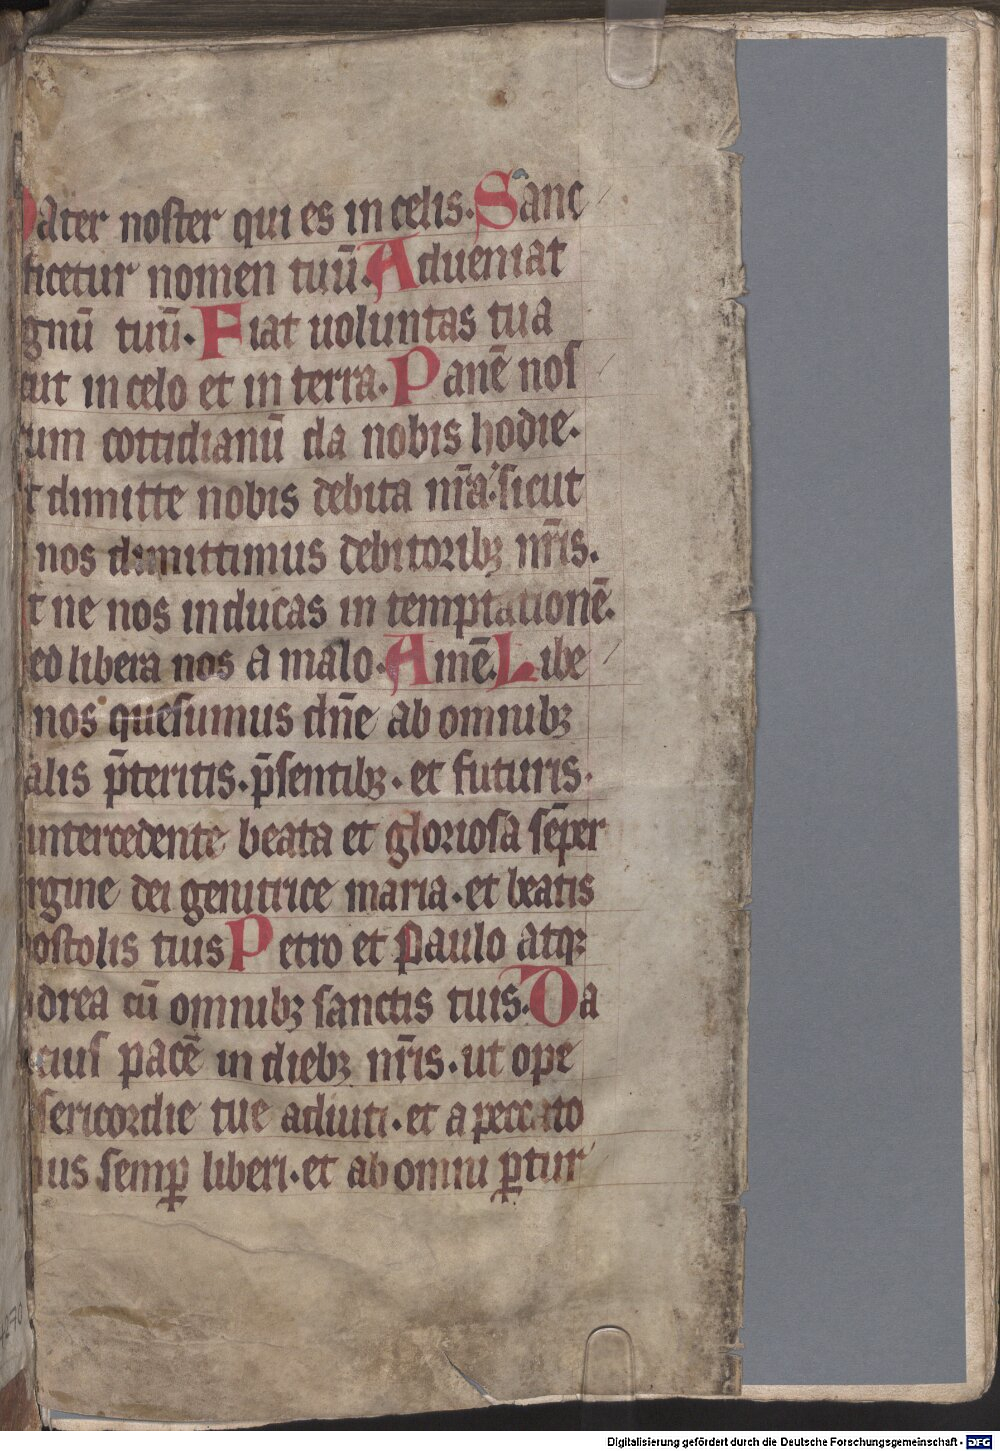 Pater noster qui es in celis. Sanc
ficetur nomen tuū. Adueniat
gnū tuū. Fiat uoluntas tua
cut in celo et in terra. Panē nos
um cottidianū da nobis hodie.
t dimitte nobis debita nr̄a. sicut
nos dimittimus debitoribꝫ nr̄is.
t ne nos inducas in temptationē.
ed libera nos a malo. Amē. Libe
nos quesumus dn̄e ab omnibꝫ
alis p̄teritis. p̄sentibꝫ. et futuris.
intercedente beata et gloriosa sēper
rgine dei genitrice maria. et beatis
ostolis tuis Petro et Paulo atqꝫ
drea cū omnibꝫ sanctis tuis. Da
cius pacē in diebꝫ nr̄is. ut ope
sericordie tue adiuti. et a peccato
nus semꝑ liberi. et ab omni ꝑtur
Digitalisierung gefördert durch die Deutsche Forschungsgemeinschaft - DFG